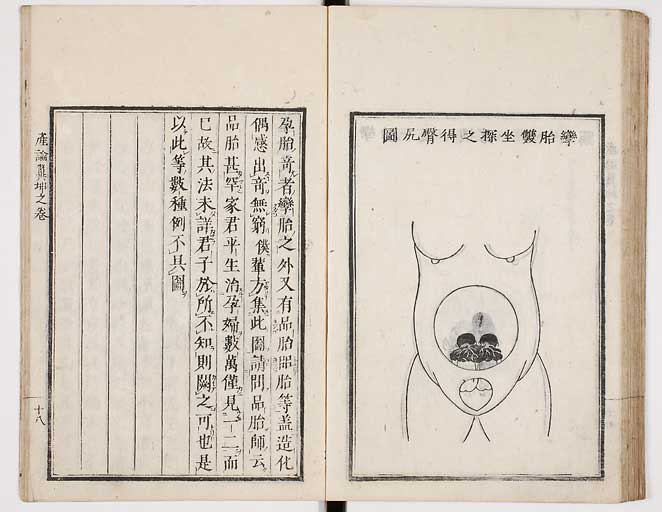 孿胎雙坐探之得臀尻圖
孕胎竒者孿胎之外又有品胎㗊胎等盖造化
偶感出竒無窮僕輩方集此圖請問品胎師云
品胎甚罕家君平生治孕婦數萬僅見一二而
已故其法未詳君子於所不知則闕之可也是
以此等數種例不具圖
產論翼坤之卷
十八